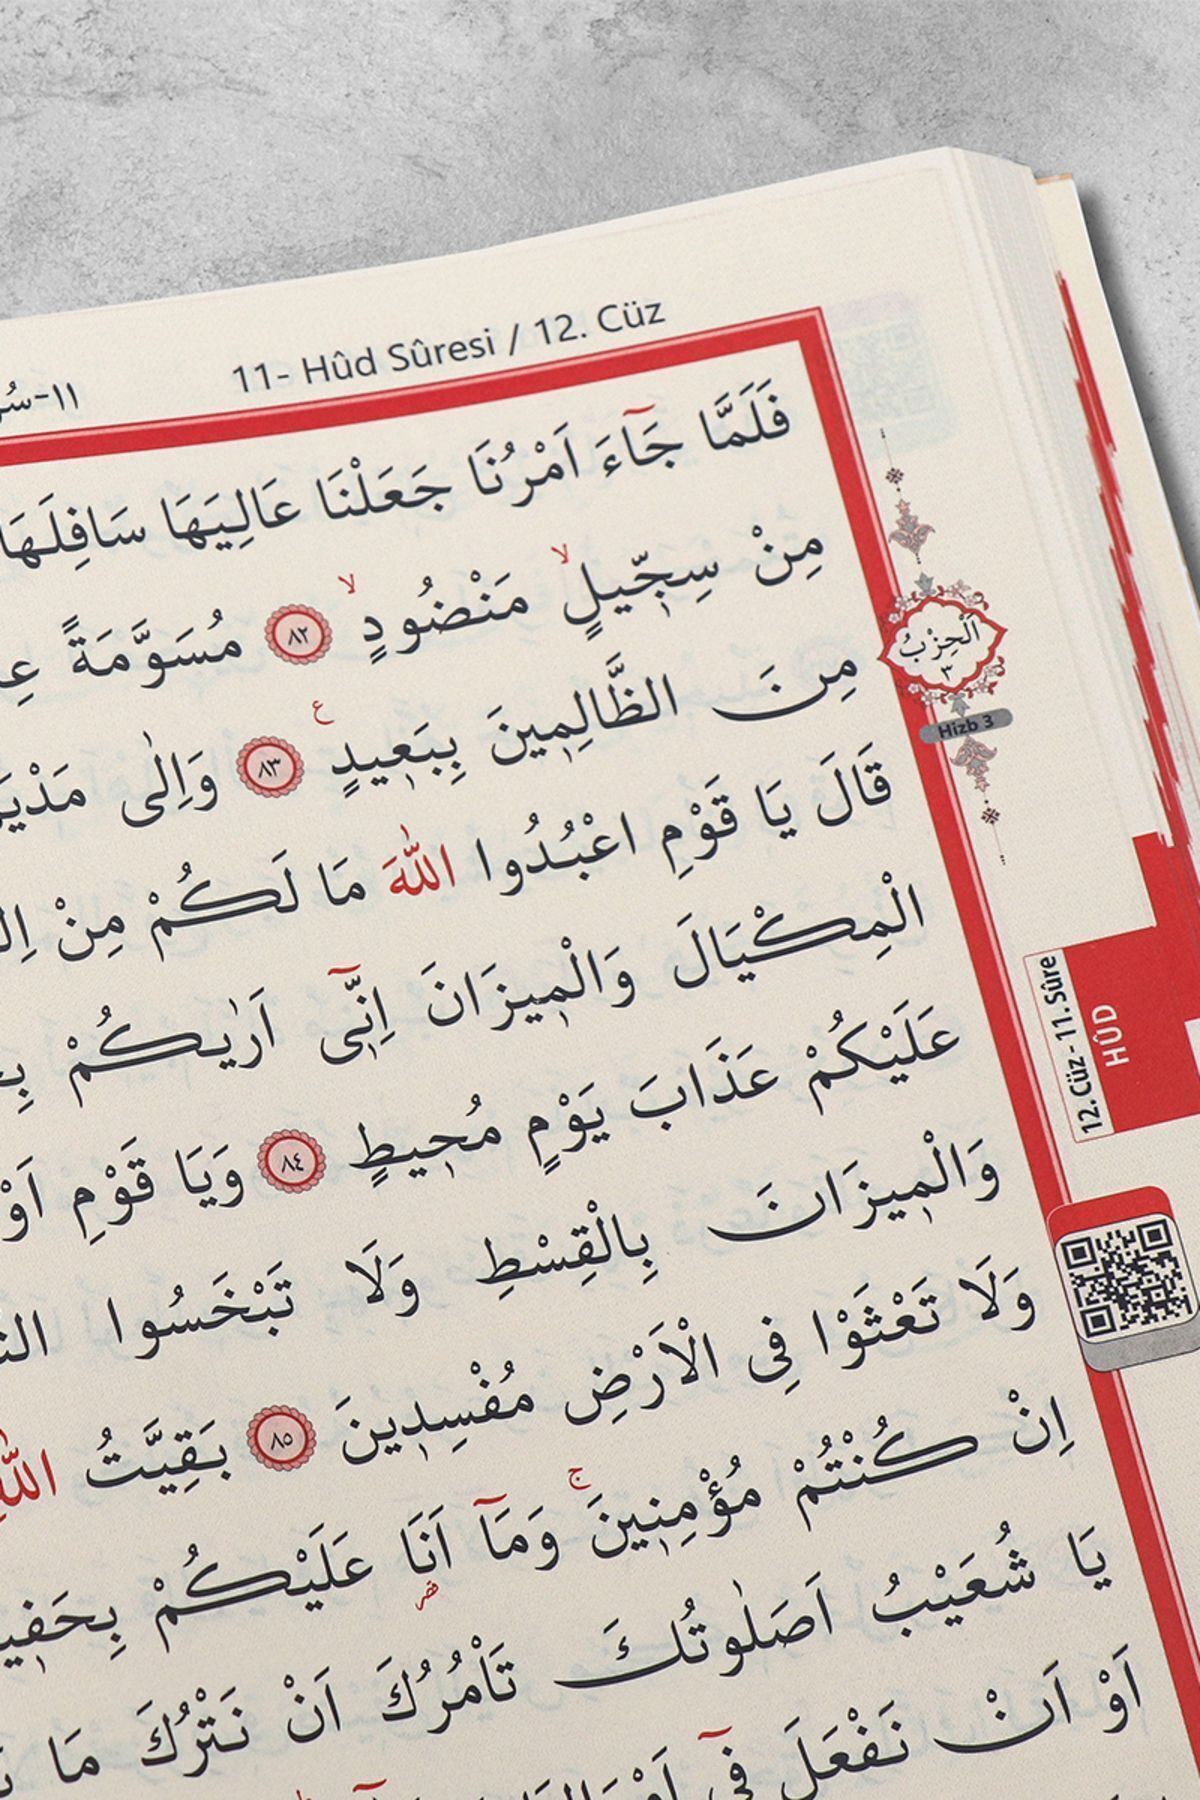 11- Hûd Sûresi / 12. Cüz
١١-سُو
فَلَمَّا جَٓاءَ اَمْرُنَا جَعَلْنَا عَالِيَهَا سَافِلَهَا
مِنْ سِجّ۪يلٍۙ مَنْضُودٍۙ ٨٢ مُسَوَّمَةً
مِنَ الظَّالِم۪ينَ بِبَع۪يدٍ۟ ع ٨٣ وَاِلٰى
قَالَ يَا قَوْمِ اعْبُدُوا اللّٰهَ مَا لَكُمْ مِنْ
الْمِكْيَالَ وَالْم۪يزَانَ اِنّ۪ٓي اَرٰيكُمْ
عَلَيْكُمْ عَذَابَ يَوْمٍ مُح۪يطٍ ٨٤ وَيَا قَوْمِ
وَالْم۪يزَانَ بِالْقِسْطِ وَلَا تَبْخَسُوا
وَلَا تَعْثَوْا فِي الْاَرْضِ مُفْسِد۪ينَ ٨٥ بَقِيَّتُ اللّٰهِ
اِنْ كُنْتُمْ مُؤْمِن۪ينَۚ وَمَٓا اَنَا۬ عَلَيْكُمْ
يَا شُعَيْبُ اَصَلٰوتُكَ تَأْمُرُكَ اَنْ نَتْرُكَ مَا
اَوْ اَنْ نَفْعَلَ ف۪ٓي
اَلْحِزْبُ
٣
Hizb 3
12. Cüz - 11. Sûre
HÛD